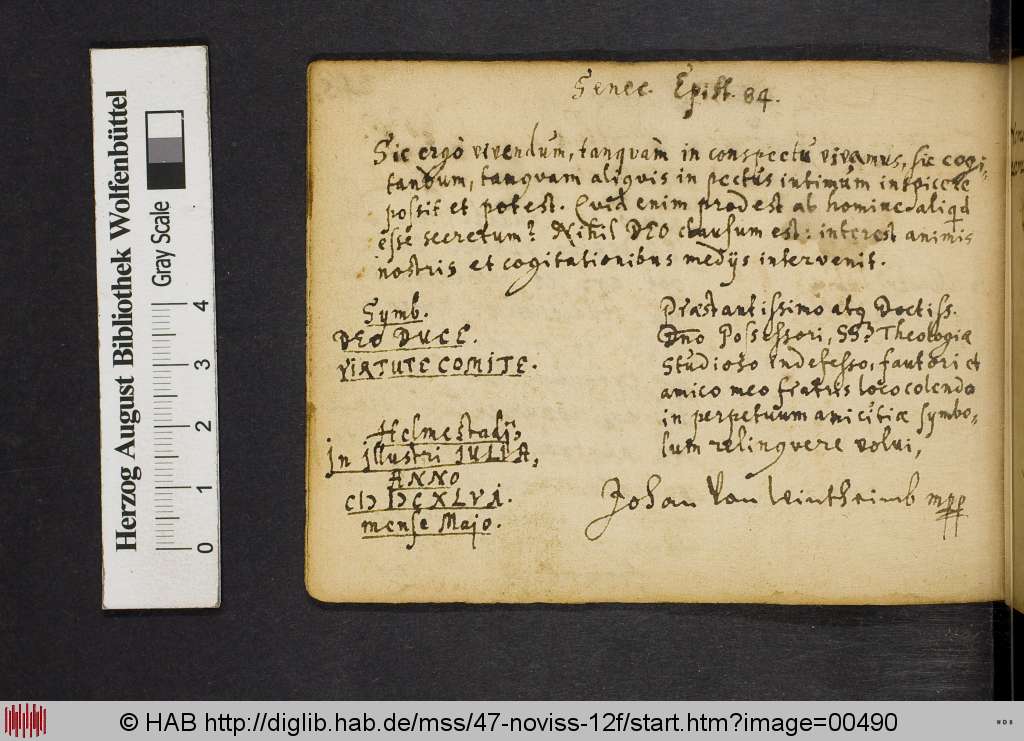 Senec. Epist. 84.
Sic ergò vivendum, tanqvàm in conspectu vivamus, sic cogi-
tandum, tanqvam aliqvis in pectus intimum inspicere
possit et potest. Qvid enim prodest ab homine aliqid
esse secretum? Nihil DEO clausum est: interest animis
nostris et cogitationibus medijs intervenit.
Symb.
DEO DUCE.
VIRTUTE COMITE.
Helmestadij
In illustri IULIA,
ANNO
CIƆ IƆCXLVI.
mense Majo.
Præstantissimo atq Doctiss.
Dno Possessori, SS. Theologiæ
Studioso indefesso, fautori et
amico meo fratris loco colendo
in perpetuum amicitiæ symbo-
lum relinqvere volui,
Johan Von Wintheimb mpp
Herzog August Bibliothek Wolfenbüttel
Gray Scale
0 1 2 3 4
© HAB http://diglib.hab.de/mss/47-noviss-12f/start.htm?image=00490